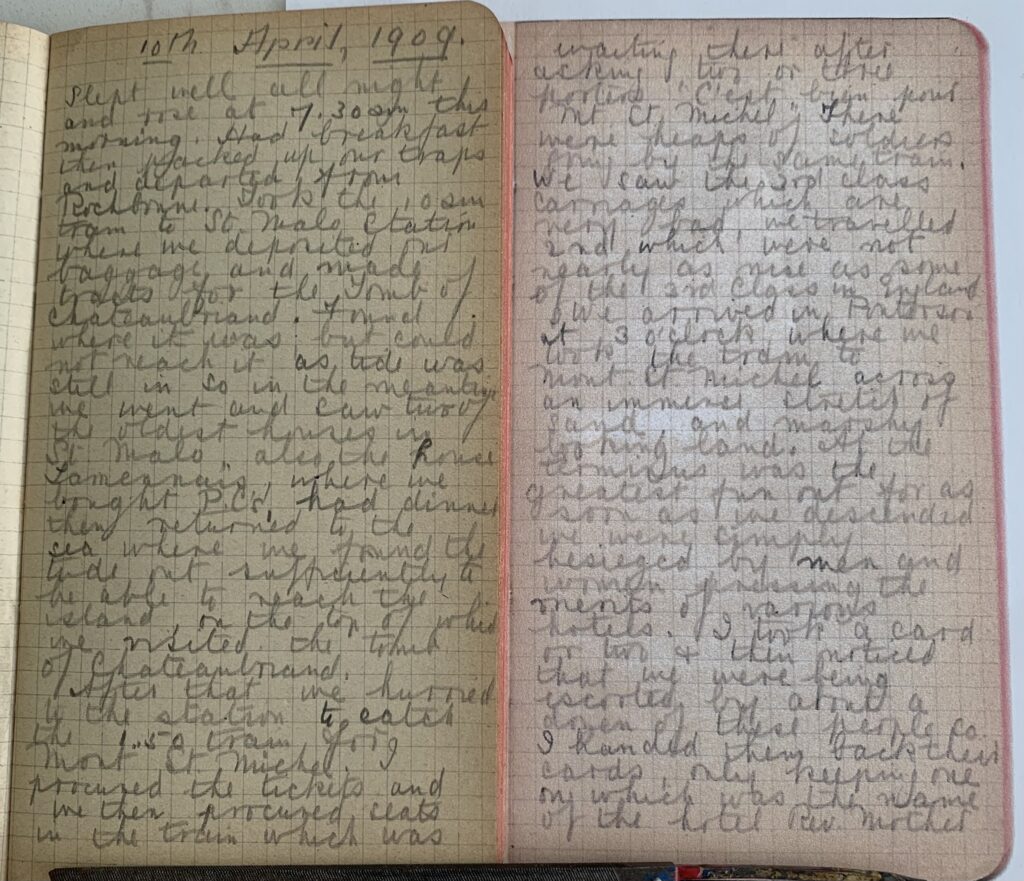 10th April, 1909.
Slept well all night
and rose at 7.30am this
morning. Had breakfast
then packed up our traps
and departed from
Rochbonne. Took the 10am
tram to St Malo Station
where we deposited our
baggage and made
tracks for the Tomb of
Chateaubriand. Found
where it was but could
not reach it as tide was
still in so in the meantime
we went and saw two of
the oldest houses in
St Malo, also the house
Lamennais, where we
bought P.C's, had dinner
then returned to the
sea where we found the
tide out sufficiently to
be able to reach the
island, on the top of which
we visited the tomb
of Chateaubriand.
After that we hurried
to the station to catch
the 1.50 train for
Mont St Michel. I
procured the tickets and
we then procured seats
in the train which was
waiting there after
asking two or three
porters "C'est bien pour
Mt St Michel". There
were heaps of soldiers
going by the same train.
We saw the 3rd class
carriages which are
very bad, we travelled
2nd which were not
nearly as nice as some
of the 3rd Class in England
We arrived in Pontorson
at 3 o'clock where we
took the tram to
Mont St Michel across
an immense stretch of
sand, and marshy
looking land. At the
terminus was the
greatest fun out for as
soon as we descended
we were simply
besieged by men and
women pressing the
merits of various
hotels. I took a card
or two & then noticed
that we were being
escorted by about a
dozen of these people so
I handed them back their
cards, only keeping one
on which was the name
of the hotel Rev. Mother